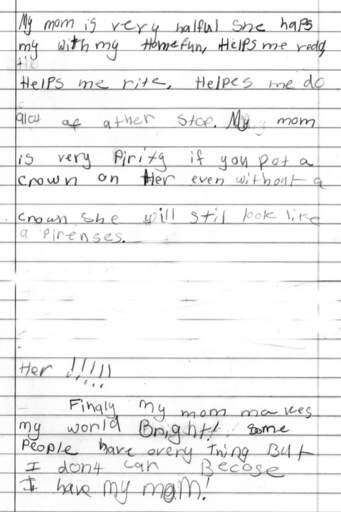 My mom is very halful she haps
my with my Homefun, Helps me
Helps me rite, Helpes me do
alot of ather stof. My mom
is very Pirity if you pot a
crown on Her even without a
crown she will stil look like
a Pirenses.
Her !!!!!
Finaly my mom makes
my world Bright! some
People have every Thing But
I dont can Becose
I have my mom!